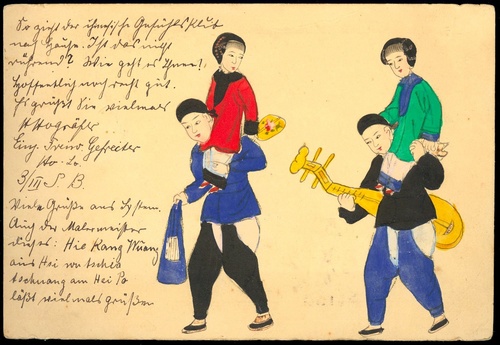 So zieht der chinesische Gefühlsklub
nach Hause. Ist das nicht
rührend? Wie geht es Ihnen!,
Hoffentlich noch recht gut.
Es grüßt Sie vielmals
Einj. Freiw. Gefreiter
3/III S. B.
Viele Grüße aus System.
Auch der Malermeister
dieses: Hie Kang Wuang
aus Hei tschi
tschuang am Hei Po
läßt vielmals grüßen